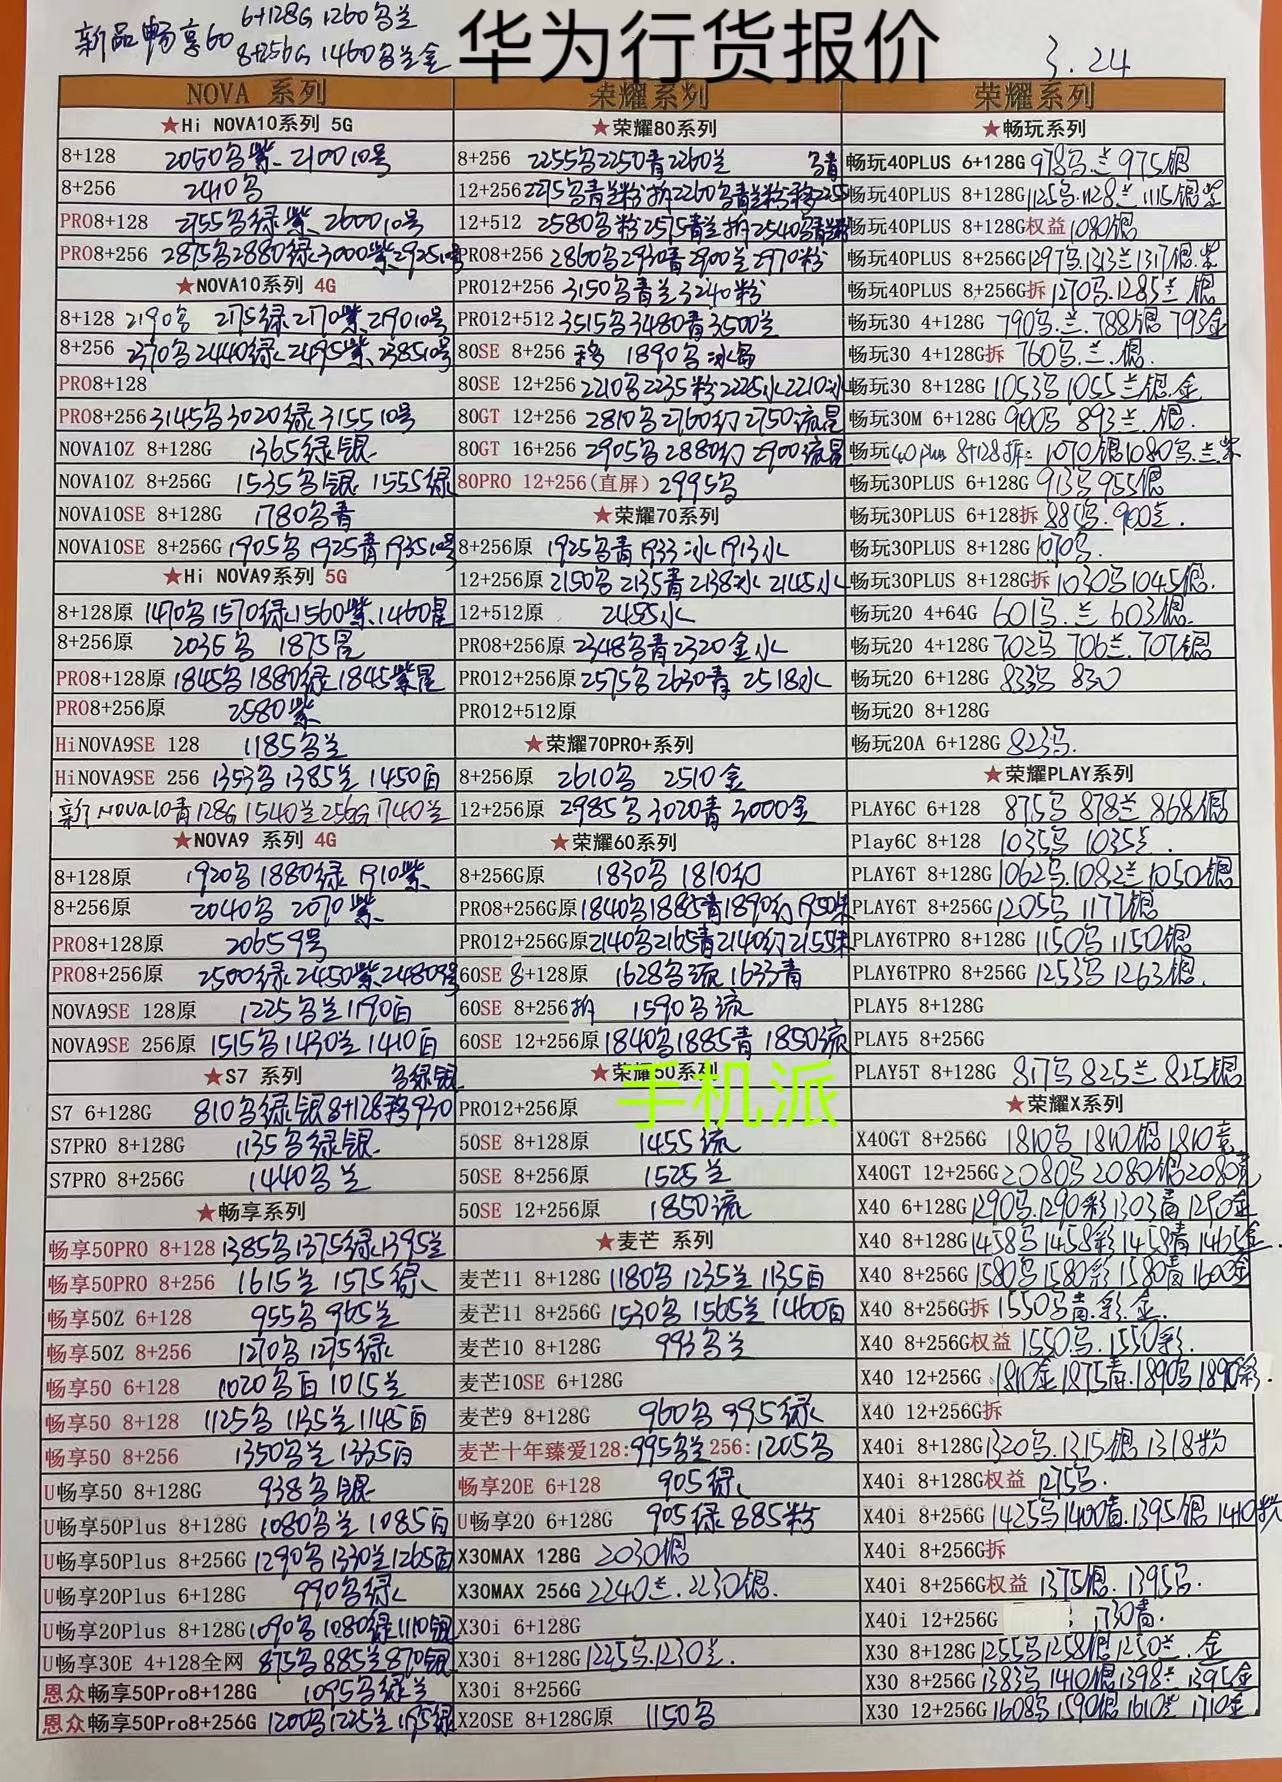 新品畅享60 6+128G 1260乌兰
8+256G 1460乌兰金
华为行货报价
3.24
NOVA 系列
★Hi NOVA10系列 5G
8+128 2050乌紫 2100 10号
8+256 2410乌
PRO8+128 2755乌绿紫 2600 10号
PRO8+256 2875乌2880绿3000紫2925 10号
★NOVA10系列 4G
8+128 2190乌 2175绿2170紫2190 10号
8+256 2370乌2440绿2495紫2385 10号
PRO8+128
PRO8+256 3145乌3020绿3155 10号
NOVA10Z 8+128G 1365绿银
NOVA10Z 8+256G 1535乌银 1555绿
NOVA10SE 8+128G 1780乌青
NOVA10SE 8+256G 1905乌1925青1935 10号
★Hi NOVA9系列 5G
8+128原 1470乌1570绿1560紫1460星
8+256原 2035乌 1875星
PRO8+128原 1845乌1880绿1845紫星
PRO8+256原 2580紫
HiNOVA9SE 128 1185乌兰
HiNOVA9SE 256 1353乌1385兰1450白
新Nova10青128G 1540兰256G 1740兰
★NOVA9 系列 4G
8+128原 1920乌1880绿1910紫
8+256原 2040乌 2070紫
PRO8+128原 2065 9号
PRO8+256原 2500绿2450紫2480 9号
NOVA9SE 128原 1225乌兰1190白
NOVA9SE 256原 1515乌1430兰1410白
★S7 系列 乌绿银
S7 6+128G 810乌绿银8+128移930
S7PRO 8+128G 1135乌绿银
S7PRO 8+256G 1440乌兰
★畅享系列
畅享50PRO 8+128 1385乌1375绿1395兰
畅享50PRO 8+256 1615兰 1575绿
畅享50Z 6+128 955乌965兰
畅享50Z 8+256 1270乌1275绿
畅享50 6+128 1020乌白1015兰
畅享50 8+128 1125乌1135兰1145白
畅享50 8+256 1350乌兰1335白
U畅享50 8+128G 938乌银
U畅享50Plus 8+128G 1080乌兰1085白
U畅享50Plus 8+256G 1290乌1330兰1265白
U畅享20Plus 6+128G 990乌绿
U畅享20Plus 8+128G 1090乌1080绿1110银
U畅享30E 4+128全网 875乌885兰870银
恩众畅享50Pro8+128G 1095乌绿兰
恩众畅享50Pro8+256G 1200乌1225兰1195绿
荣耀系列
★荣耀80系列
8+256 2255乌2250青2260兰 乌青
12+256 2275乌青兰粉拆2260乌青兰粉移2255
12+512 2580乌粉2575青兰拆2540乌青兰粉
PRO8+256 2860乌2930青2900兰2970粉
PRO12+256 3150乌青兰3240粉
PRO12+512 3515乌3480青3500兰
80SE 8+256 移 1890乌冰岛
80SE 12+256 2210乌2235粉2225水2210冰
80GT 12+256 2810乌2760幻2750流星
80GT 16+256 2905乌2880幻2900流星
80PRO 12+256(直屏) 2995乌
★荣耀70系列
8+256原 1925乌青1933冰1913水
12+256原 2150乌2135青2138冰2145水
12+512原 2455水
PRO8+256原 2348乌青2320金水
PRO12+256原 2575乌2630青 2518水
PRO12+512原
★荣耀70PRO+系列
8+256原 2610乌 2510金
12+256原 2985乌3020青3000金
★荣耀60系列
8+256G原 1830乌1810幻
PRO8+256G原 1840乌1885青1890幻1950朱
PRO12+256G原 2140乌2165青2140幻2155朱
60SE 8+128原 1628乌流1633青
60SE 8+256拆 1590乌流
60SE 12+256原 1840乌1885青1850流
★荣耀50系列
手机派
PRO12+256原
50SE 8+128原 1455流
50SE 8+256原 1525兰
50SE 12+256原 1850流
★麦芒 系列
麦芒11 8+128G 1180乌1235兰1135白
麦芒11 8+256G 1530乌1565兰1460白
麦芒10 8+128G 993乌兰
麦芒10SE 6+128G
麦芒9 8+128G 960乌995绿
麦芒十年臻爱128:995乌兰256:1205乌
畅享20E 6+128 905绿
U畅享20 6+128G 905绿885粉
X30MAX 128G 2030银
X30MAX 256G 2240兰.2230银.
X30i 6+128G
X30i 8+128G 1225乌.1230兰.
X30i 8+256G
X20SE 8+128G原 1150乌
荣耀系列
★畅玩系列
畅玩40PLUS 6+128G 978乌.兰975银
畅玩40PLUS 8+128G 1125乌.1128兰1115银.紫
畅玩40PLUS 8+128G权益 1080银
畅玩40PLUS 8+256G 1297乌.1313兰1317银.紫
畅玩40PLUS 8+256G拆 1270乌.1285兰.银
畅玩30 4+128G 790乌.兰.788银 793金
畅玩30 4+128G拆 760乌.兰.银.
畅玩30 8+128G 1053乌1055兰.银.金
畅玩30M 6+128G 900乌 893兰.银.
畅玩40plus 8+128拆:1070银1080乌.兰.紫
畅玩30PLUS 6+128G 913乌955银
畅玩30PLUS 6+128拆 885乌.900兰.
畅玩30PLUS 8+128G 1070乌.
畅玩30PLUS 8+128G拆 1030乌1045银.
畅玩20 4+64G 601乌.兰603银.
畅玩20 4+128G 702乌706兰.707银
畅玩20 6+128G 833乌 830
畅玩20 8+128G
畅玩20A 6+128G 823乌.
★荣耀PLAY系列
PLAY6C 6+128 875乌878兰868银
Play6C 8+128 1035乌1035兰.
PLAY6T 8+128G 1062乌.1082兰1050银
PLAY6T 8+256G 1205乌1177银
PLAY6TPRO 8+128G 1150乌1150银
PLAY6TPRO 8+256G 1253乌1263银.
PLAY5 8+128G
PLAY5 8+256G
PLAY5T 8+128G 817乌825兰825银
★荣耀X系列
X40GT 8+256G 1810乌1810银1810竞
X40GT 12+256G 2080乌2080银2080竞
X40 6+128G 1290乌.1290彩1303青1290金
X40 8+128G 1458乌1458彩1458青1465金.
X40 8+256G 1580乌1580彩1580青1600金
X40 8+256G拆 1550乌青.彩.金.
X40 8+256G权益 1550乌.1550彩.
X40 12+256G 1810金1875青.1890乌1890彩.
X40 12+256G拆
X40i 8+128G 1320乌.1315银1318粉
X40i 8+128G权益 1275乌.
X40i 8+256G 1425乌1400青.1395银1410粉
X40i 8+256G拆
X40i 8+256G权益 1375银.1395乌.
X40i 12+256G 1730青.
X30 8+128G 1255乌1258银1250兰.金
X30 8+256G 1383乌1410银1398兰1395金
X30 12+256G 1608乌1590银1610兰1710金